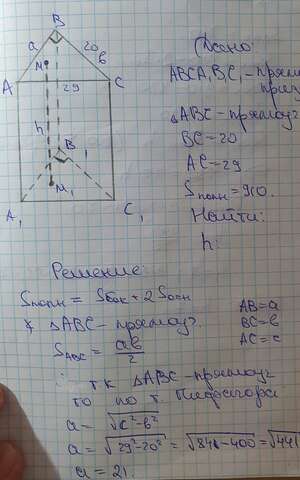 B
a
20
в
M
A
29
C
h
B₁
M₁
A₁
C₁
Дано:
ABCA₁B₁C₁ - прямая
приз
△ABC - прямоуг
BC = 20
AC = 29
Sполн = 910.
Найти:
h:
Решение:
Sполн = Sбок + 2 Sосн
△ABC - прямоуг.
S_ABC = ab/2
AB = a
BC = b
AC = c
∴ т.к △ABC - прямоуг
то по т. Пифагора
a = √c²-b²
a = √29²-20² = √841-400 = √441
a = 21.